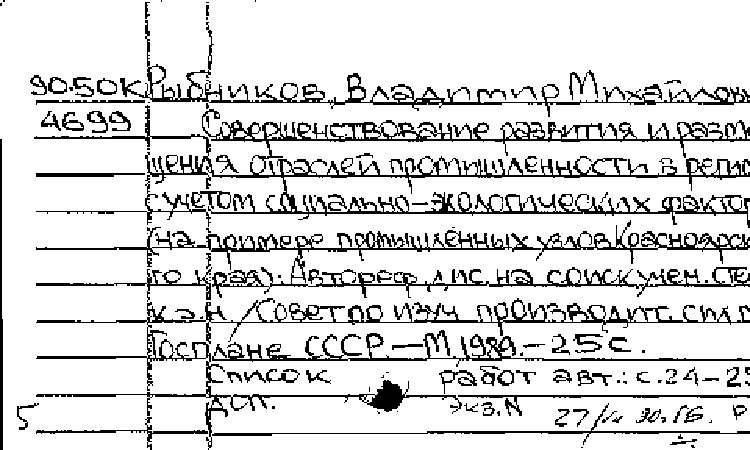 90.50К Рыбников, Владимир Михайлови
4699 Совершенствование развития и разме
щения отраслей промышленности в регио
с учетом социально-экологических фактор
(на примере промышленных узлов Красноярск
го края): Автореф. дис. на соиск. учен. сте
к.э.н. / Совет по изуч. производит. сил п
Госплане СССР. — М., 1989. — 25 с.
Список работ авт.: с. 24-25
ДСП. Экз. N
5